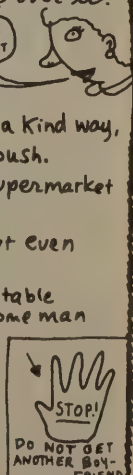 a kind way,
upermarket
t even
table
ome man
STOP!
DO NOT GET
ANOTHER BOY-
FRIEND